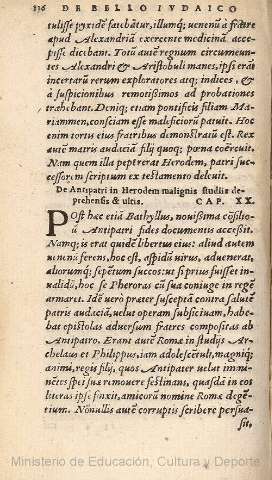 116 DE BELLO IVDAICO
tulisse pyxidē fatebātur, illumq; uenenū a fratre
apud Alexandriā exercente medicinā acce-
pisse dicebant. Totū autē regnum circumeun-
tes Alexandri & Aristobuli manes, ipsi erāt
incertarū rerum exploratores atq; indices, &
à suspicionibus remotissimos ad probationes
trahebant. Deniq; etiam pontificis filiam Ma-
riammen, consciam esse maleficiorū patuit. Hoc
enim tortis eius fratribus demonstratū est. Rex
autē matris audaciā filij quoq; pœna coërcuit.
Nam quem illa pepererat Herodem, patri suc-
cessorem scriptum ex testamento deleuit.
De Antipatri in Herodem malignis studiis de-
prehensis & ultis. CAP. XX.
Post hæc etiā Bathyllus, nouißima cōsilio-
rū Antipatri fides documentis acceßit.
Namq; is erat quidē libertus eius: aliud autem
uenenū ferens, hoc est, aspidū virus, aduenerat,
aliorumq; serpētum succos: ut si prius fuisset in-
ualidū, hoc se Pheroras cū sua coniuge in regē
armaret. Idē verò præter susceptā contra salutē
patris audaciā, velut operam subsiciuam, habe-
bat epistolas aduersum fratres compositas ab
Antipatro. Erant autē Romæ in studijs Ar-
chelaus et Philippus, iam adolescētuli, magniq;
animi, regis filij, quos Antipater velut immi-
nētes spei suæ remouere festinans, quasdā in eos
literas ipse finxit, amicorū nomine Romæ degē-
tium. Nōnullis autē corruptis scribere persua-
sit,
Ministerio de Educación, Cultura y Deporte